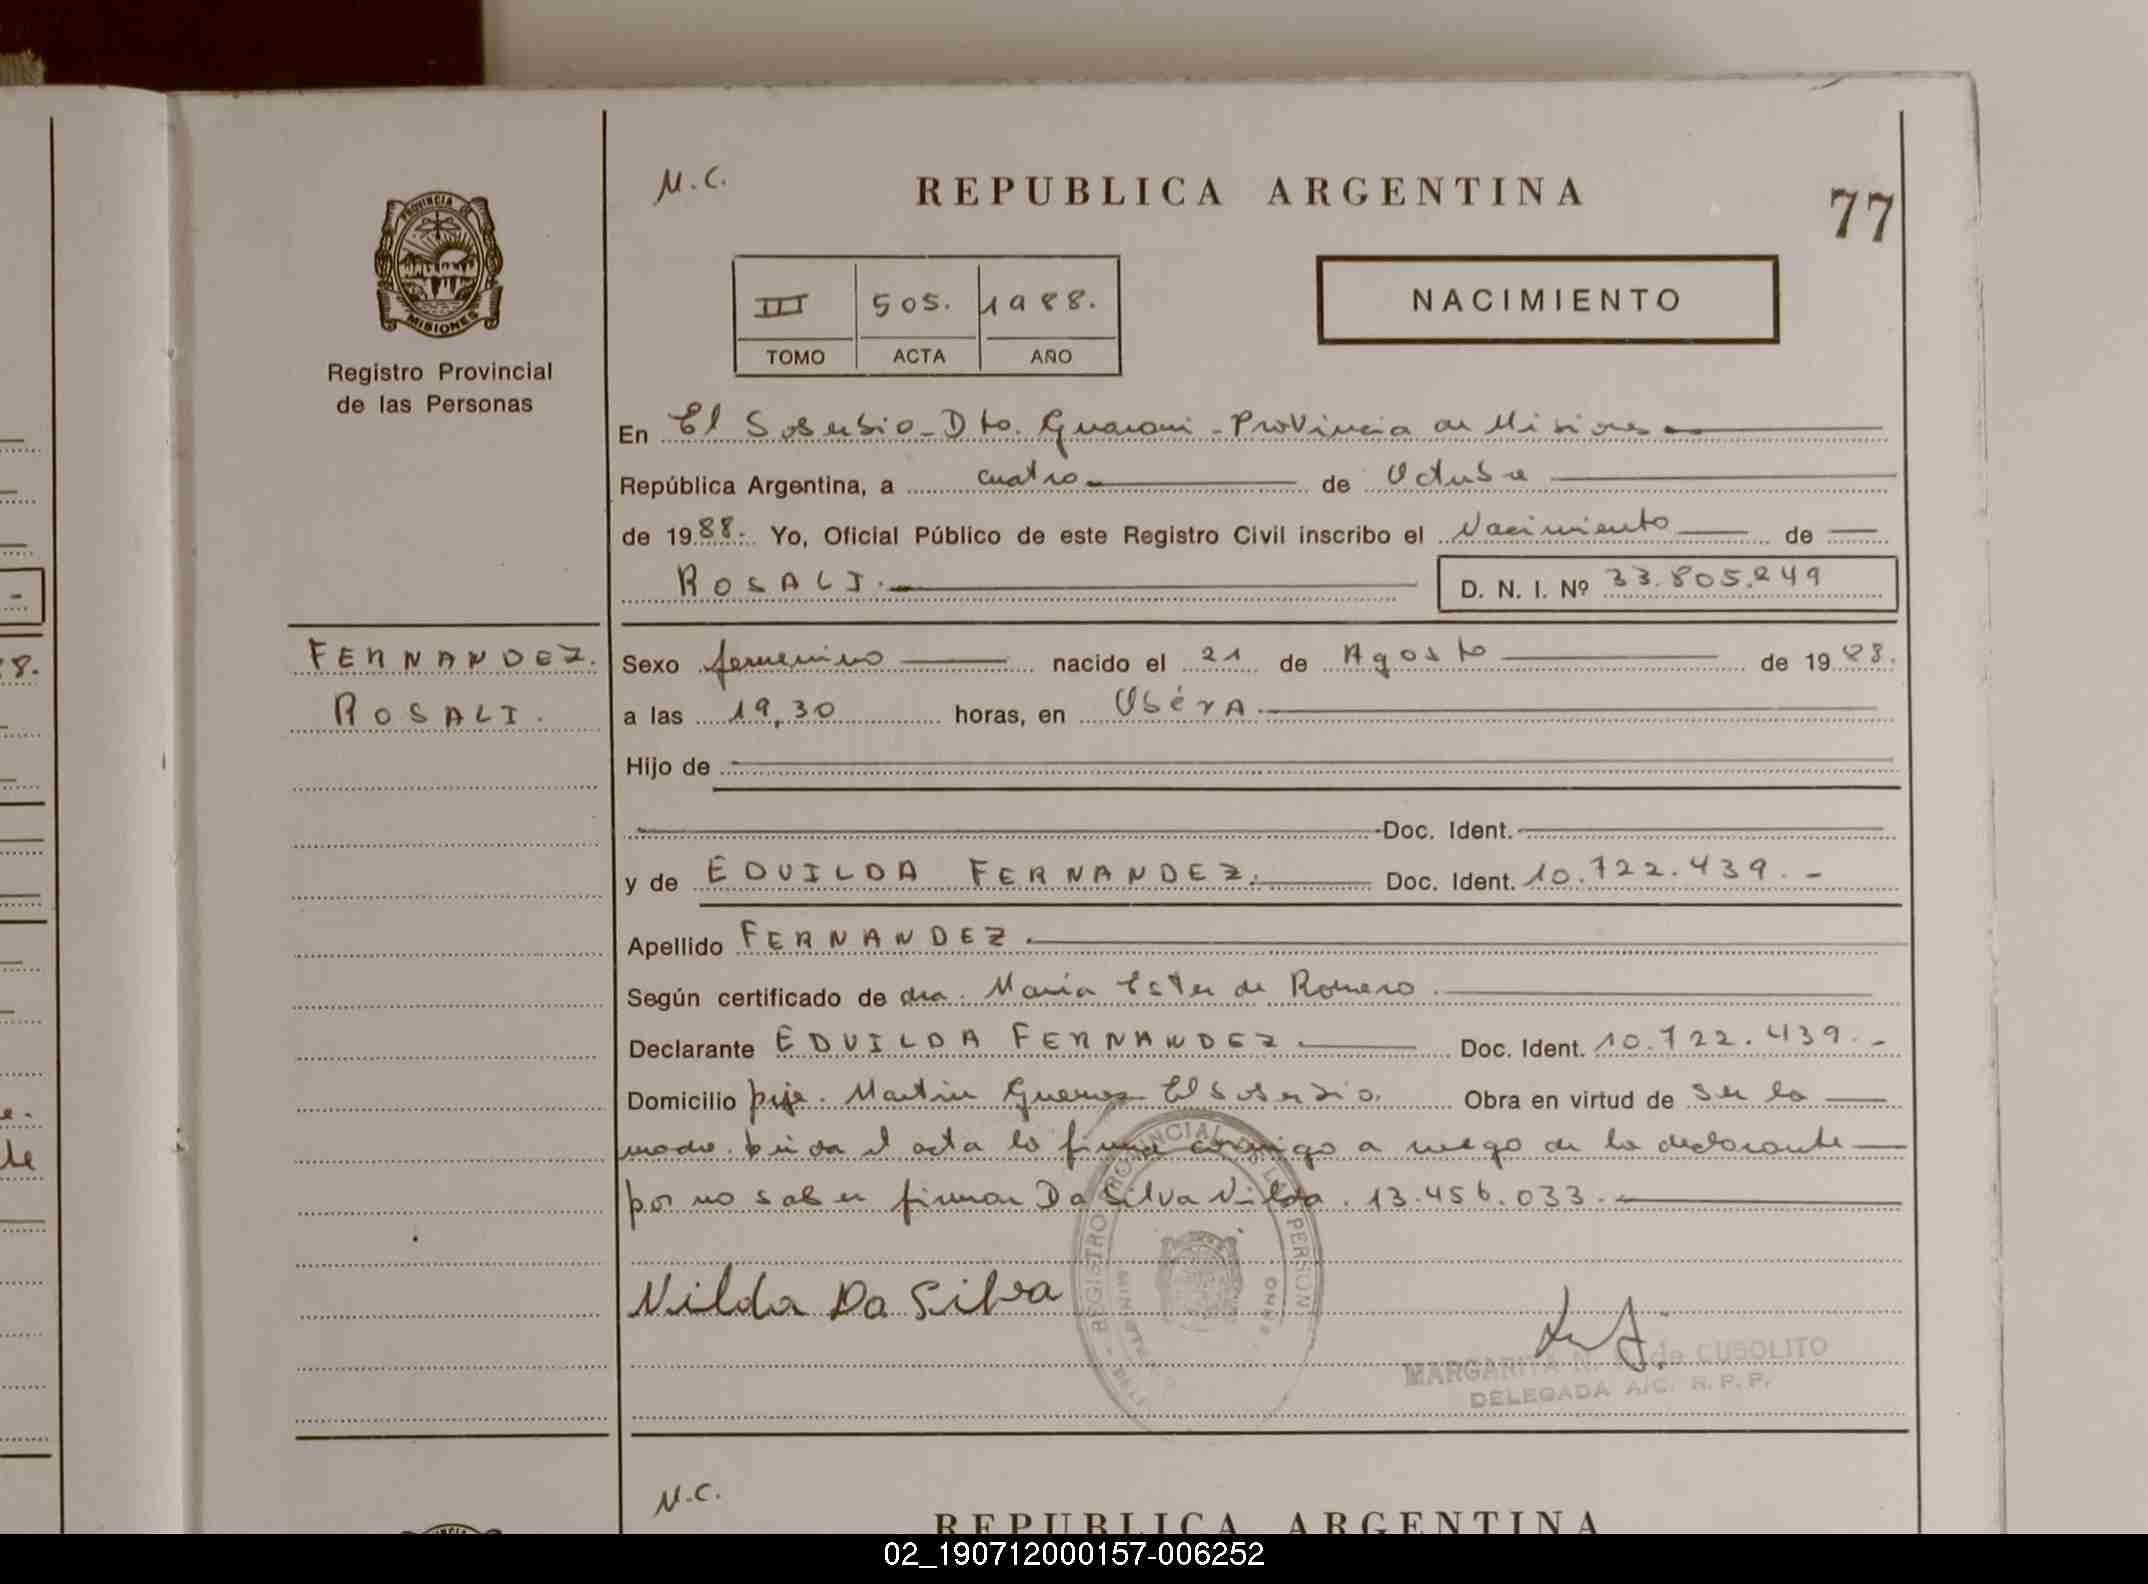 M.C.
REPUBLICA ARGENTINA
77
PROVINCIA DE
MISIONES
Registro Provincial
de las Personas
III 505. 1988.
TOMO ACTA AÑO
NACIMIENTO
En El Soberbio - Dto. Guarani - Provincia de Misiones
República Argentina, a cuatro de Octubre
de 1988. Yo, Oficial Público de este Registro Civil inscribo el Nacimiento de
ROSALI. D. N. I. Nº 33.805.249
FERNANDEZ.
ROSALI.
Sexo femenino nacido el 21 de Agosto de 1988.
a las 19,30 horas, en Obéra
Hijo de
Doc. Ident.
y de EDUILDA FERNANDEZ. Doc. Ident. 10.722.439. -
Apellido FERNANDEZ.
Según certificado de dra. Maria Ester de Romero.
Declarante EDUILDA FERNANDEZ. Doc. Ident. 10.722.439. -
Domicilio pje. Martin Guemes El Soberbio. Obra en virtud de ser la
madre. Leida el acta la firma conmigo a ruego de la declarante
por no saber firmar Da Silva Nilda. 13.456.033.
Nilda Da Silva
REGISTRO PROVINCIAL DE LAS PERSONAS
MARGARITA N. de CUSOLITO
DELEGADA A/C. R.P.P.
M.C.
REPUBLICA ARGENTINA
02_190712000157-006252